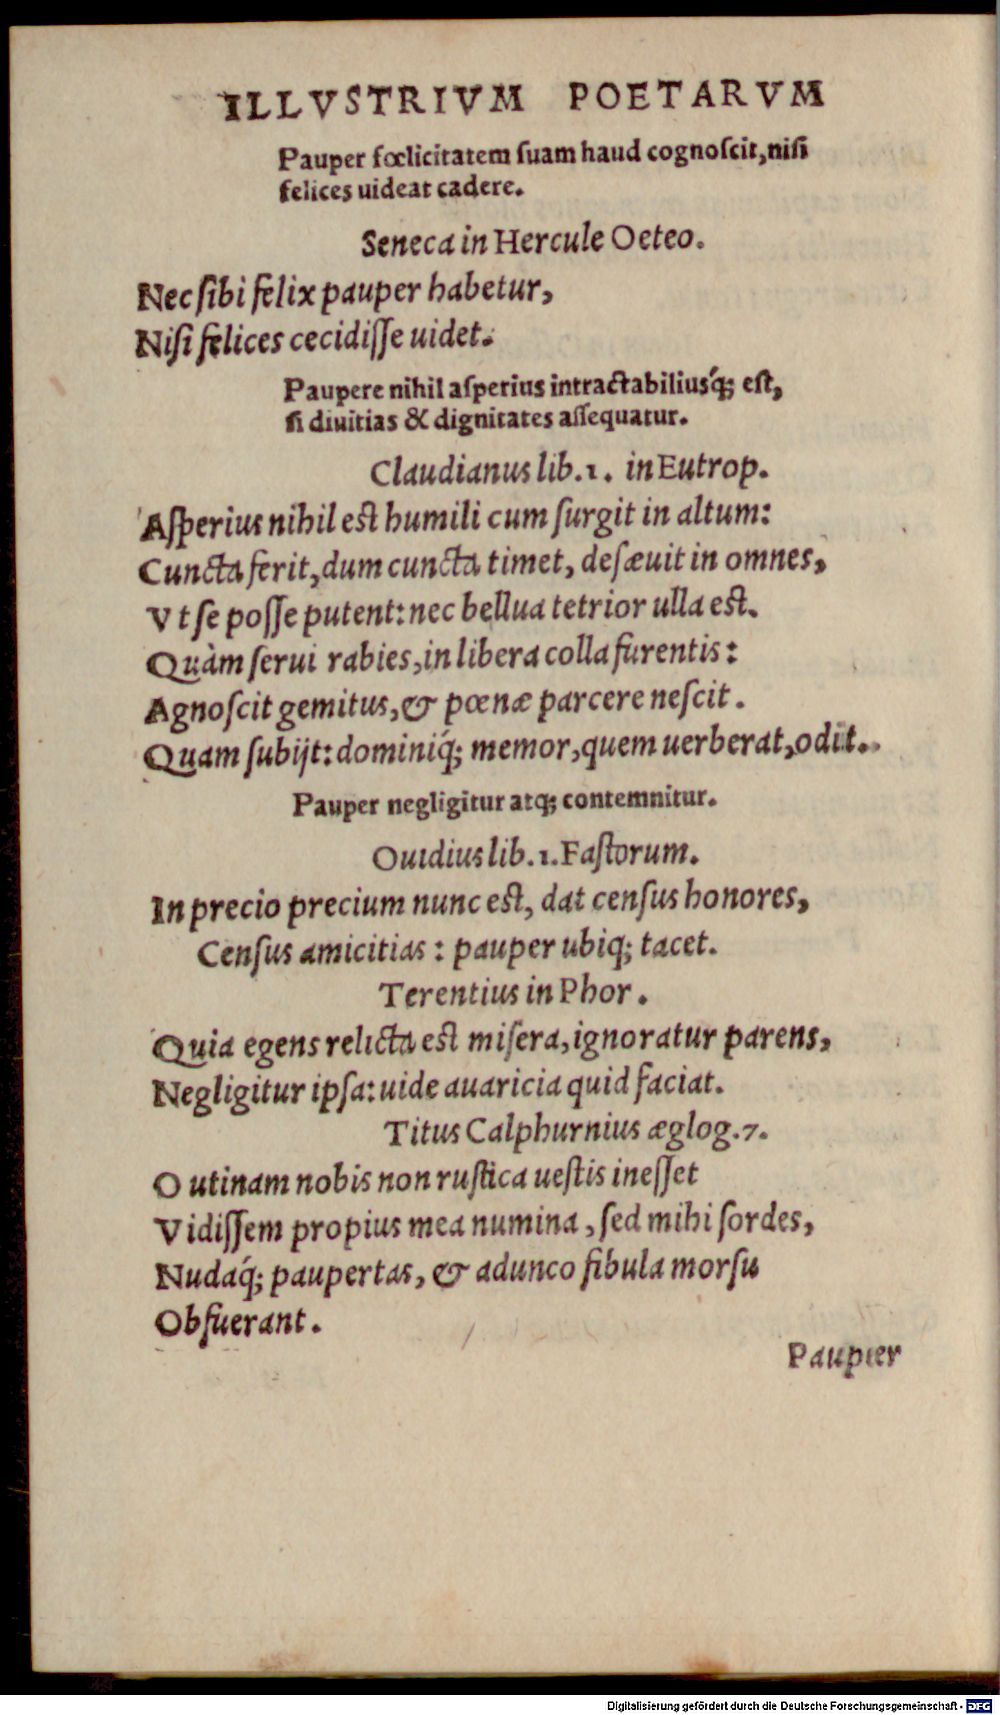 ILLVSTRIVM POETARVM
Pauper fœlicitatem ſuam haud cognoſcit, niſi
felices uideat cadere.
Seneca in Hercule Oeteo.
Nec ſibi felix pauper habetur,
Niſi felices cecidiſſe uidet.
Paupere nihil aſperius intractabiliusq́; eſt,
ſi diuitias & dignitates aſſequatur.
Claudianus lib. 1. in Eutrop.
Aſperius nihil eſt humili cum ſurgit in altum:
Cuncta ferit, dum cuncta timet, deſæuit in omnes,
Vt ſe poſſe putent: nec bellua tetrior ulla eſt.
Quàm ſerui rabies, in libera colla furentis:
Agnoſcit gemitus, & pœnæ parcere neſcit.
Quam ſubijt: dominiq́; memor, quem uerberat, odit.
Pauper negligitur atq; contemnitur.
Ouidius lib. 1. Faſtorum.
In precio precium nunc eſt, dat cenſus honores,
Cenſus amicitias: pauper ubiq; tacet.
Terentius in Phor.
Quia egens relicta eſt miſera, ignoratur parens,
Negligitur ipſa: uide auaricia quid faciat.
Titus Calphurnius æglog. 7.
O utinam nobis non ruſtica ueſtis ineſſet
Vidiſſem propius mea numina, ſed mihi ſordes,
Nudaq́; paupertas, & adunco fibula morſu
Obfuerant.
Paupier
Digitalisierung gefördert durch die Deutsche Forschungsgemeinschaft - DFG